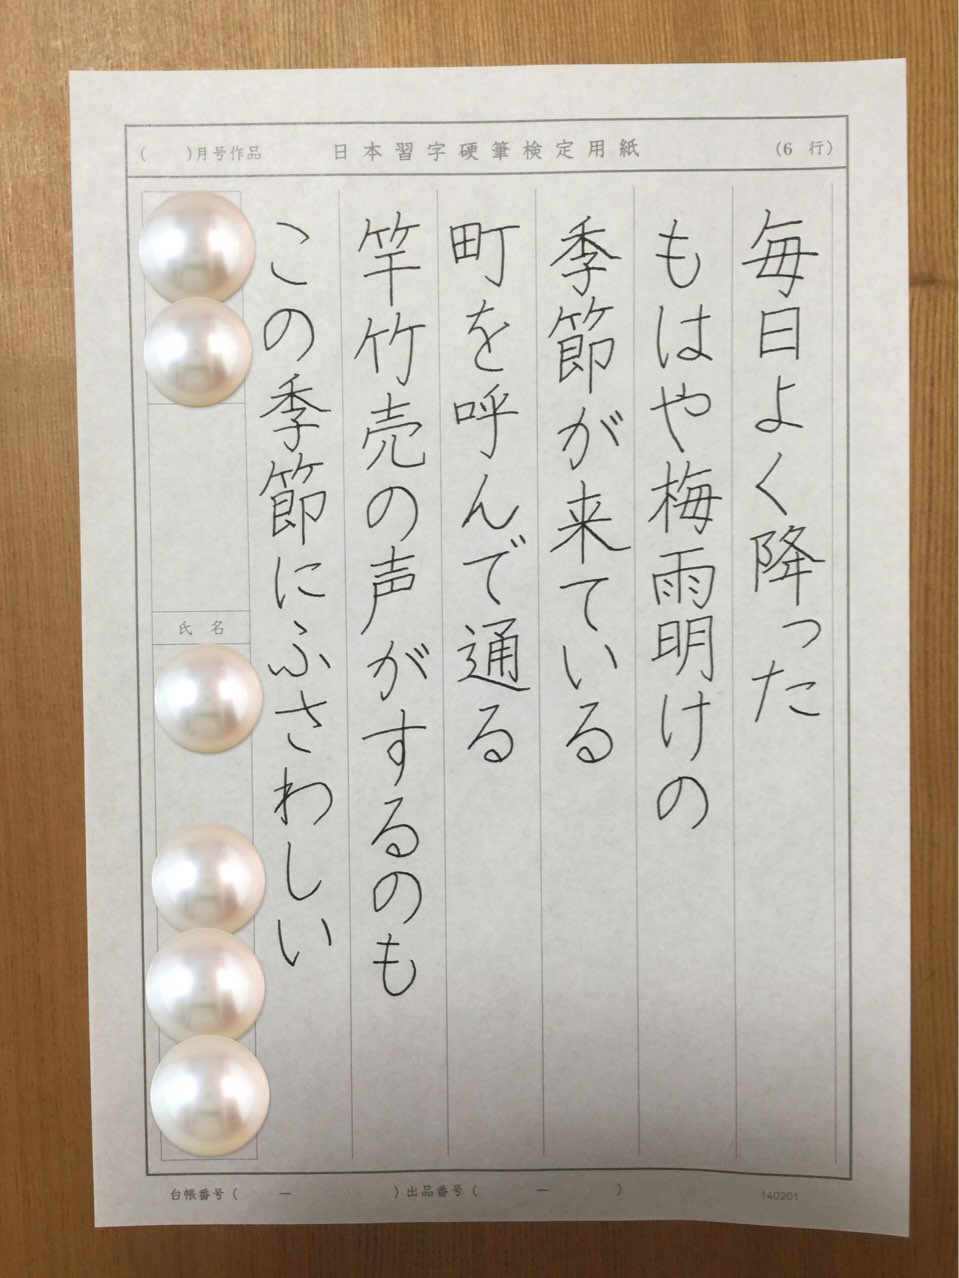 ( )月号作品 日本習字硬筆検定用紙 (6 行)
毎日よく降った
もはや梅雨明けの
季節が来ている
町を呼んで通る
竿竹売の声がするのも
この季節にふさわしい
氏 名
台帳番号( ー )出品番号( ー )
140201